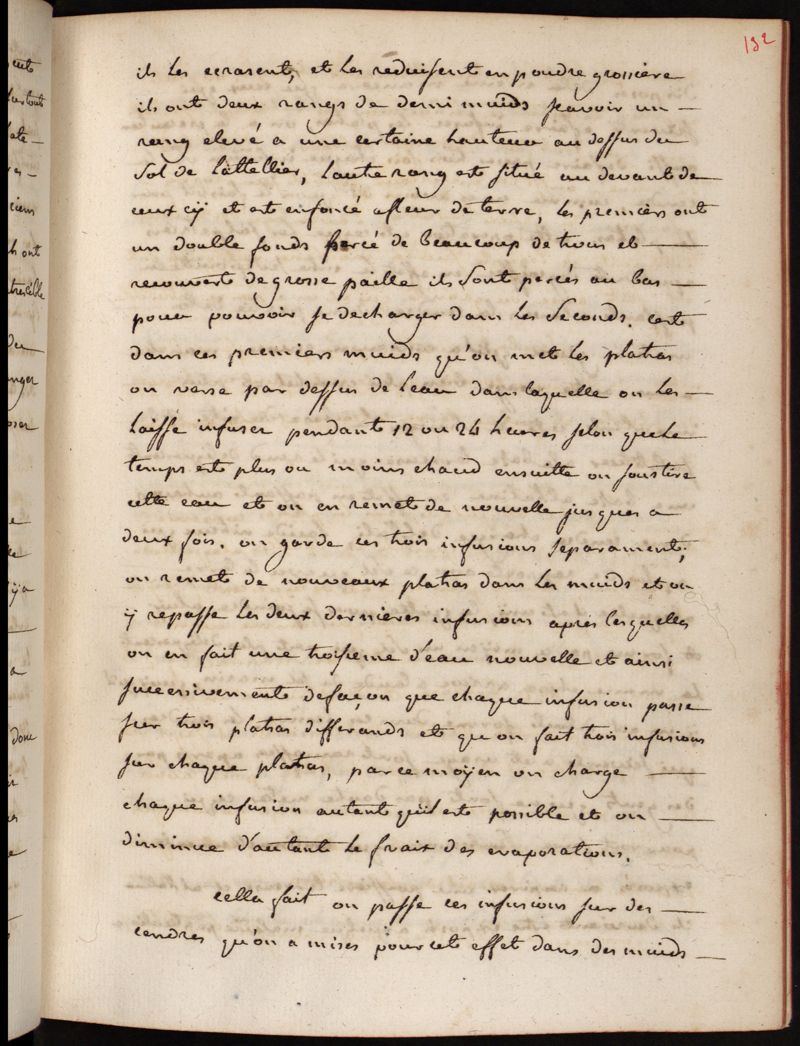 132
ils les ecrasent, et les reduisent en poudre grossiere
ils ont deux rangs de demi muids scavoir un —
rang elevé a une certaine hauteur au dessus du
Sol de l'attellier, lautre rang est situé au devant de
ceux cÿ et est enfoncé afleur de terre, les premiers ont
un double fonds percé de beaucoup de trous et —
recouverts de grosse paille ils sont percés au bas —
pour pouvoir se decharger dans les Seconds. cest
dans ces premiers muids qu'on met les platras
on verse par dessus de leau dans laquelle on les —
laisse infuser pendant 12 ou 24 heures selon que le
temps est plus ou moins chaud ensuitte on soustire
cette eau et on en remet de nouvelle jusques a
deux fois. on garde ces trois infusions separament,
on remet de nouveaux platras dans les muids et on
ÿ repasse les deux dernieres infusions après lesquelles
on en fait une troisieme d'eau nouvelle et ainsi
successivement de façon que chaque infusion passe
sur trois platras differands et qu on fait trois infusions
sur chaque platras, par ce moÿen on charge —
chaque infusion autant qu'il est possible et on —
diminue d'autant le fraix des evaporations.
cella fait on passe ces infusions sur des —
cendres qu'on a mises pour cet effet dans des muids —